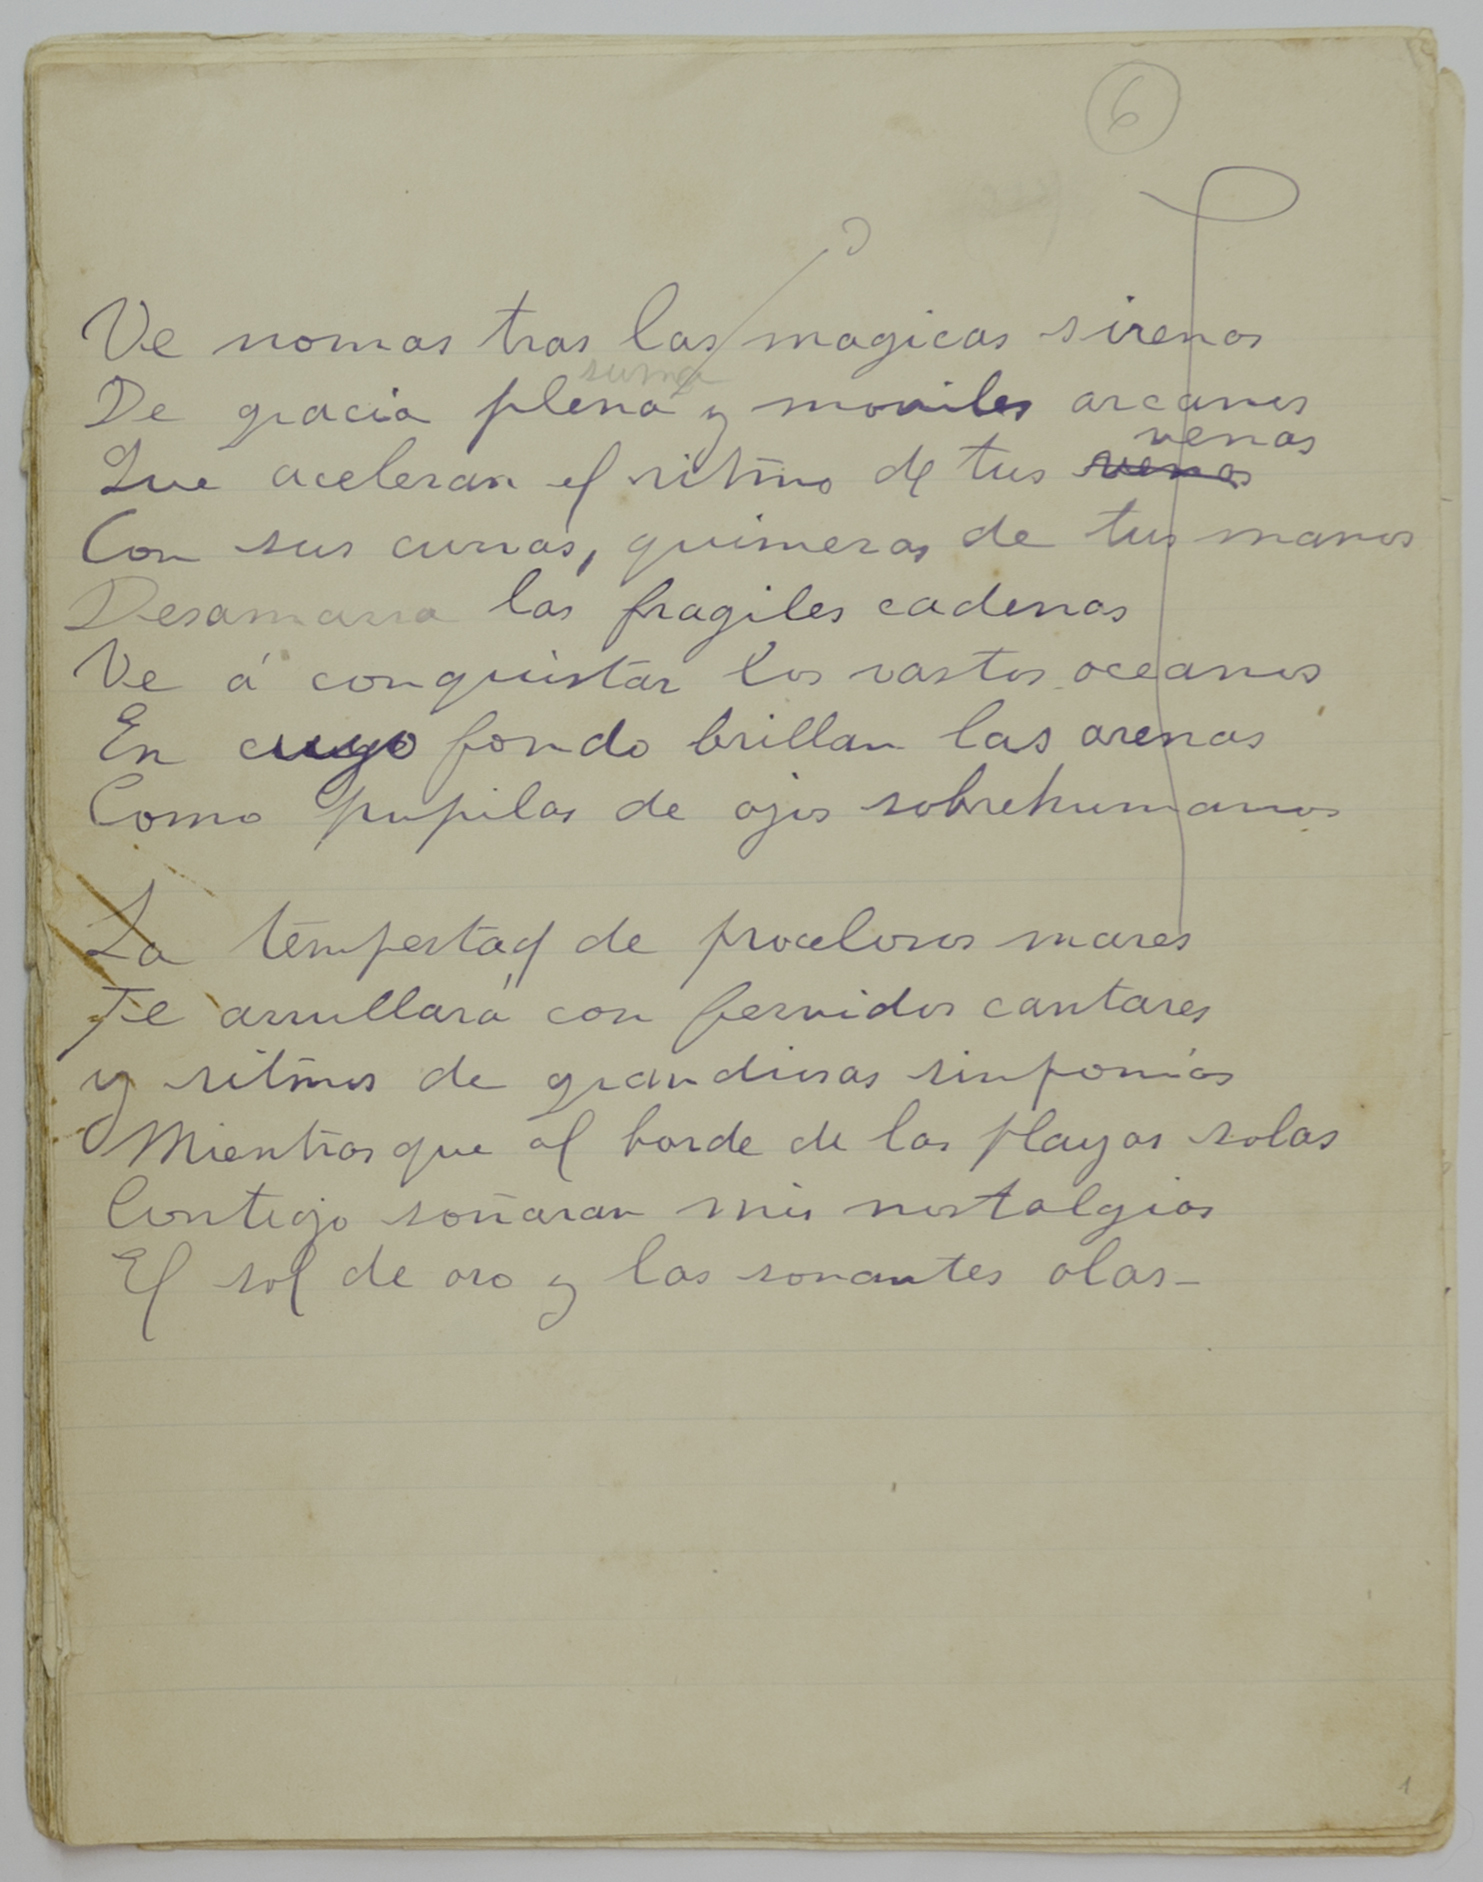 6
Ve nomas tras las magicas sirenas
suma
De gracia plena y moviles arcanos
venas
Que aceleran el ritmo de tus venas
Con sus curvas, quimeras de tus manos
Desamarra las fragiles cadenas
Ve á conquistar los vastos oceanos
En cuyo fondo brillan las arenas
Como pupilas de ojos sobrehumanos
La tempestad de procelosos mares
Te arrullará con fervidos cantares
y ritmos de grandiosas sinfonías
Mientras que al borde de las playas solas
Contigo soñaran mis nostalgias
El sol de oro y las sonantes olas-
1